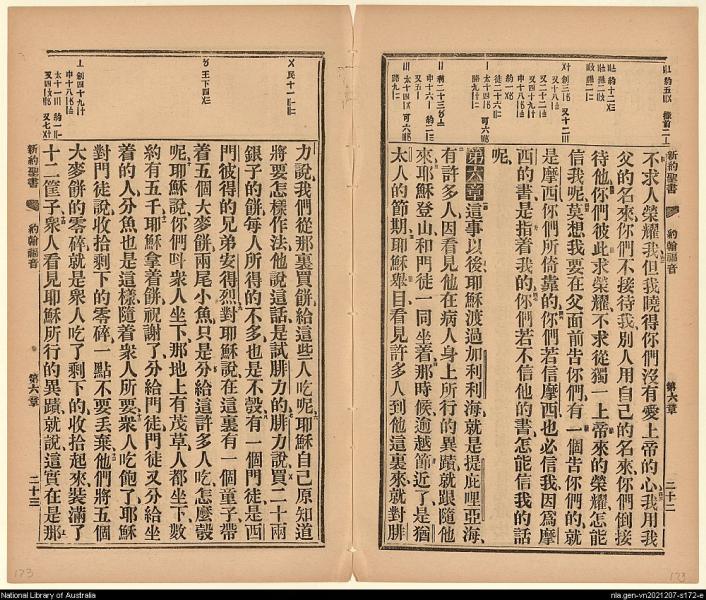 新約聖書 約翰福音 第六章 二十二
不求人榮耀我但我曉得你們沒有愛上帝的心我用我
父的名來你們不接待我別人用自己的名來你們倒接
待他你們彼此求榮耀不求從獨一上帝來的榮耀怎能
信我呢莫想我要在父面前告你們有一個告你們的就
是摩西你們所倚靠的你們若信摩西也必信我因爲摩
西的書是指着我的你們若不信他的書怎能信我的話
呢
第六章這事以後耶穌渡過加利利海就是提庇哩亞海
有許多人因看見他在病人身上所行的異蹟就跟隨他
來耶穌登山和門徒一同坐着那時候逾越節近了是猶
太人的節期耶穌舉目看見許多人到他這裏來就對腓
力說我們從那裏買餅給這些人吃呢耶穌自己原知道
將要怎樣作法他說這話是試腓力的腓力說買二十兩
銀子的餅每人所得的不多也是不彀有一個門徒是西
門彼得的兄弟安得烈對耶穌說在這裏有一個童子帶
着五個大麥餅兩尾小魚只是分給這許多人吃怎麼彀
呢耶穌說你們叫衆人坐下那地上有茂草人都坐下數
約有五千耶穌拿着餅祝謝了分給門徒門徒又分給坐
着的人分魚也是這樣隨着衆人所要衆人吃飽了耶穌
對門徒說收拾剩下的零碎一點不要丟棄他們將五個
大麥餅的零碎就是衆人吃了剩下的收拾起來裝滿了
十二筐子衆人看見耶穌所行的異蹟就說這實在是那
新約聖書 約翰福音 第六章 二十三
173
173
National Library of Australia
nla.gen-vn2021207-s172-e